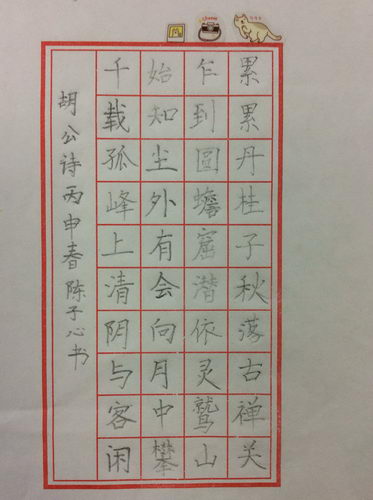 累累丹桂子秋落古禅关
乍到圆蟾窟潜依灵鹫山
始知尘外有会向月中攀
千载孤峰上清阴与客闲
胡公诗丙申春陈子心书